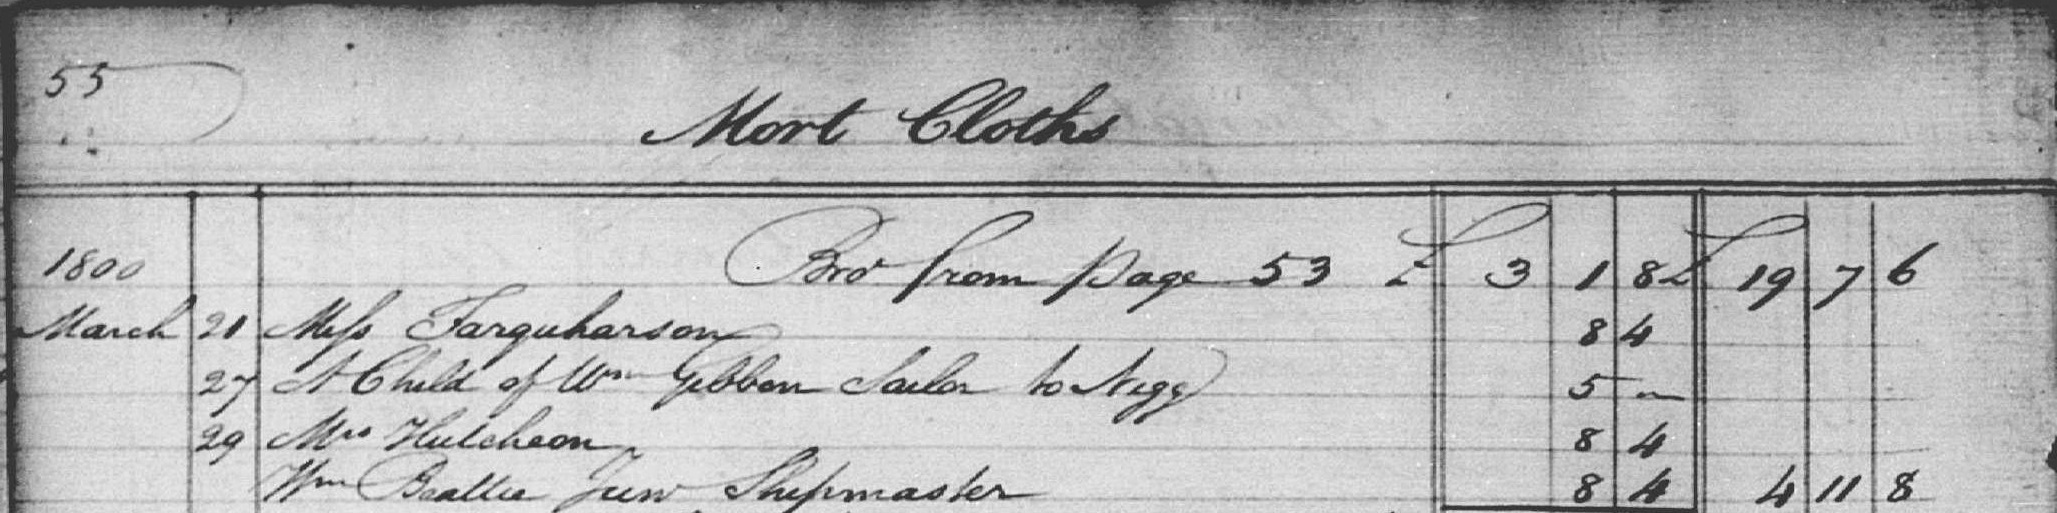 55
Mort Cloths
1800 Bro from page 53 £ 3 1 8 £ 19 7 6
March 21 Miss Farquharson 8 4
27 A Child of Wm Gibbon Sailor to Nigg 5 ~
29 Mrs Hutcheon 8 4
Wm Beattie Junr Shipmaster 8 4 4 11 8